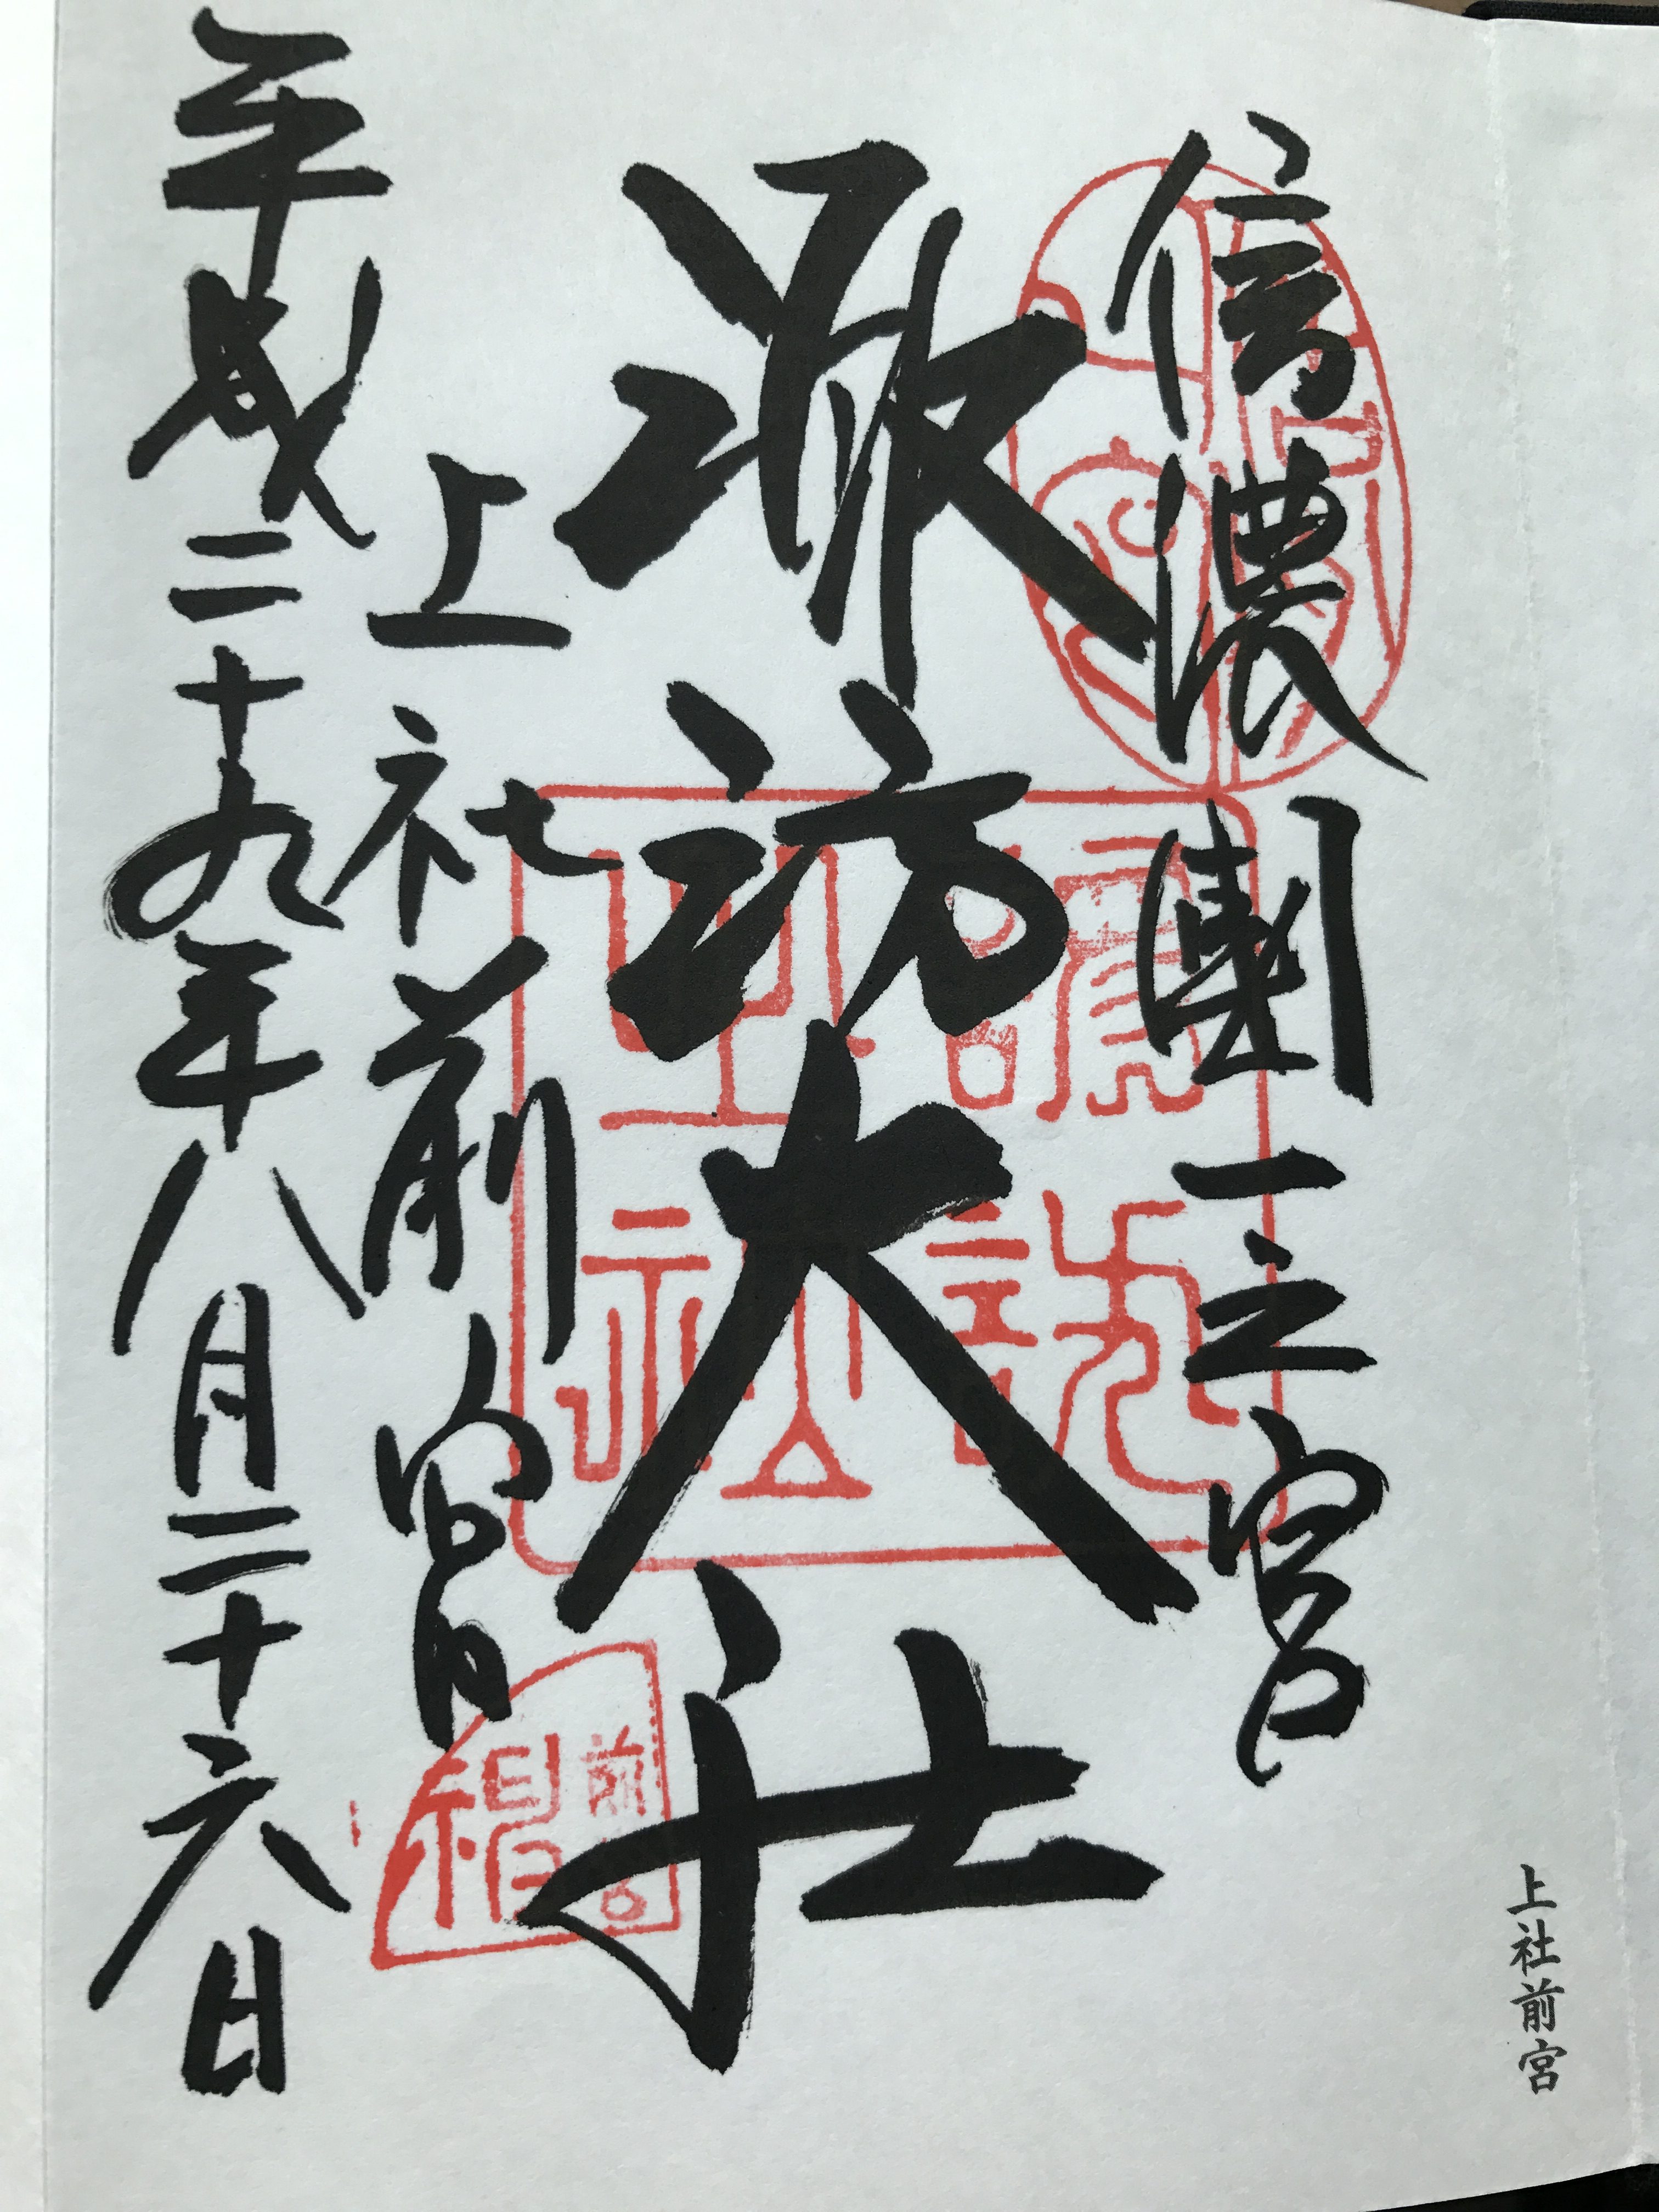 信濃國一之宮
諏訪大社
上社前宮
平成二十九年八月二十六日
上社前宮